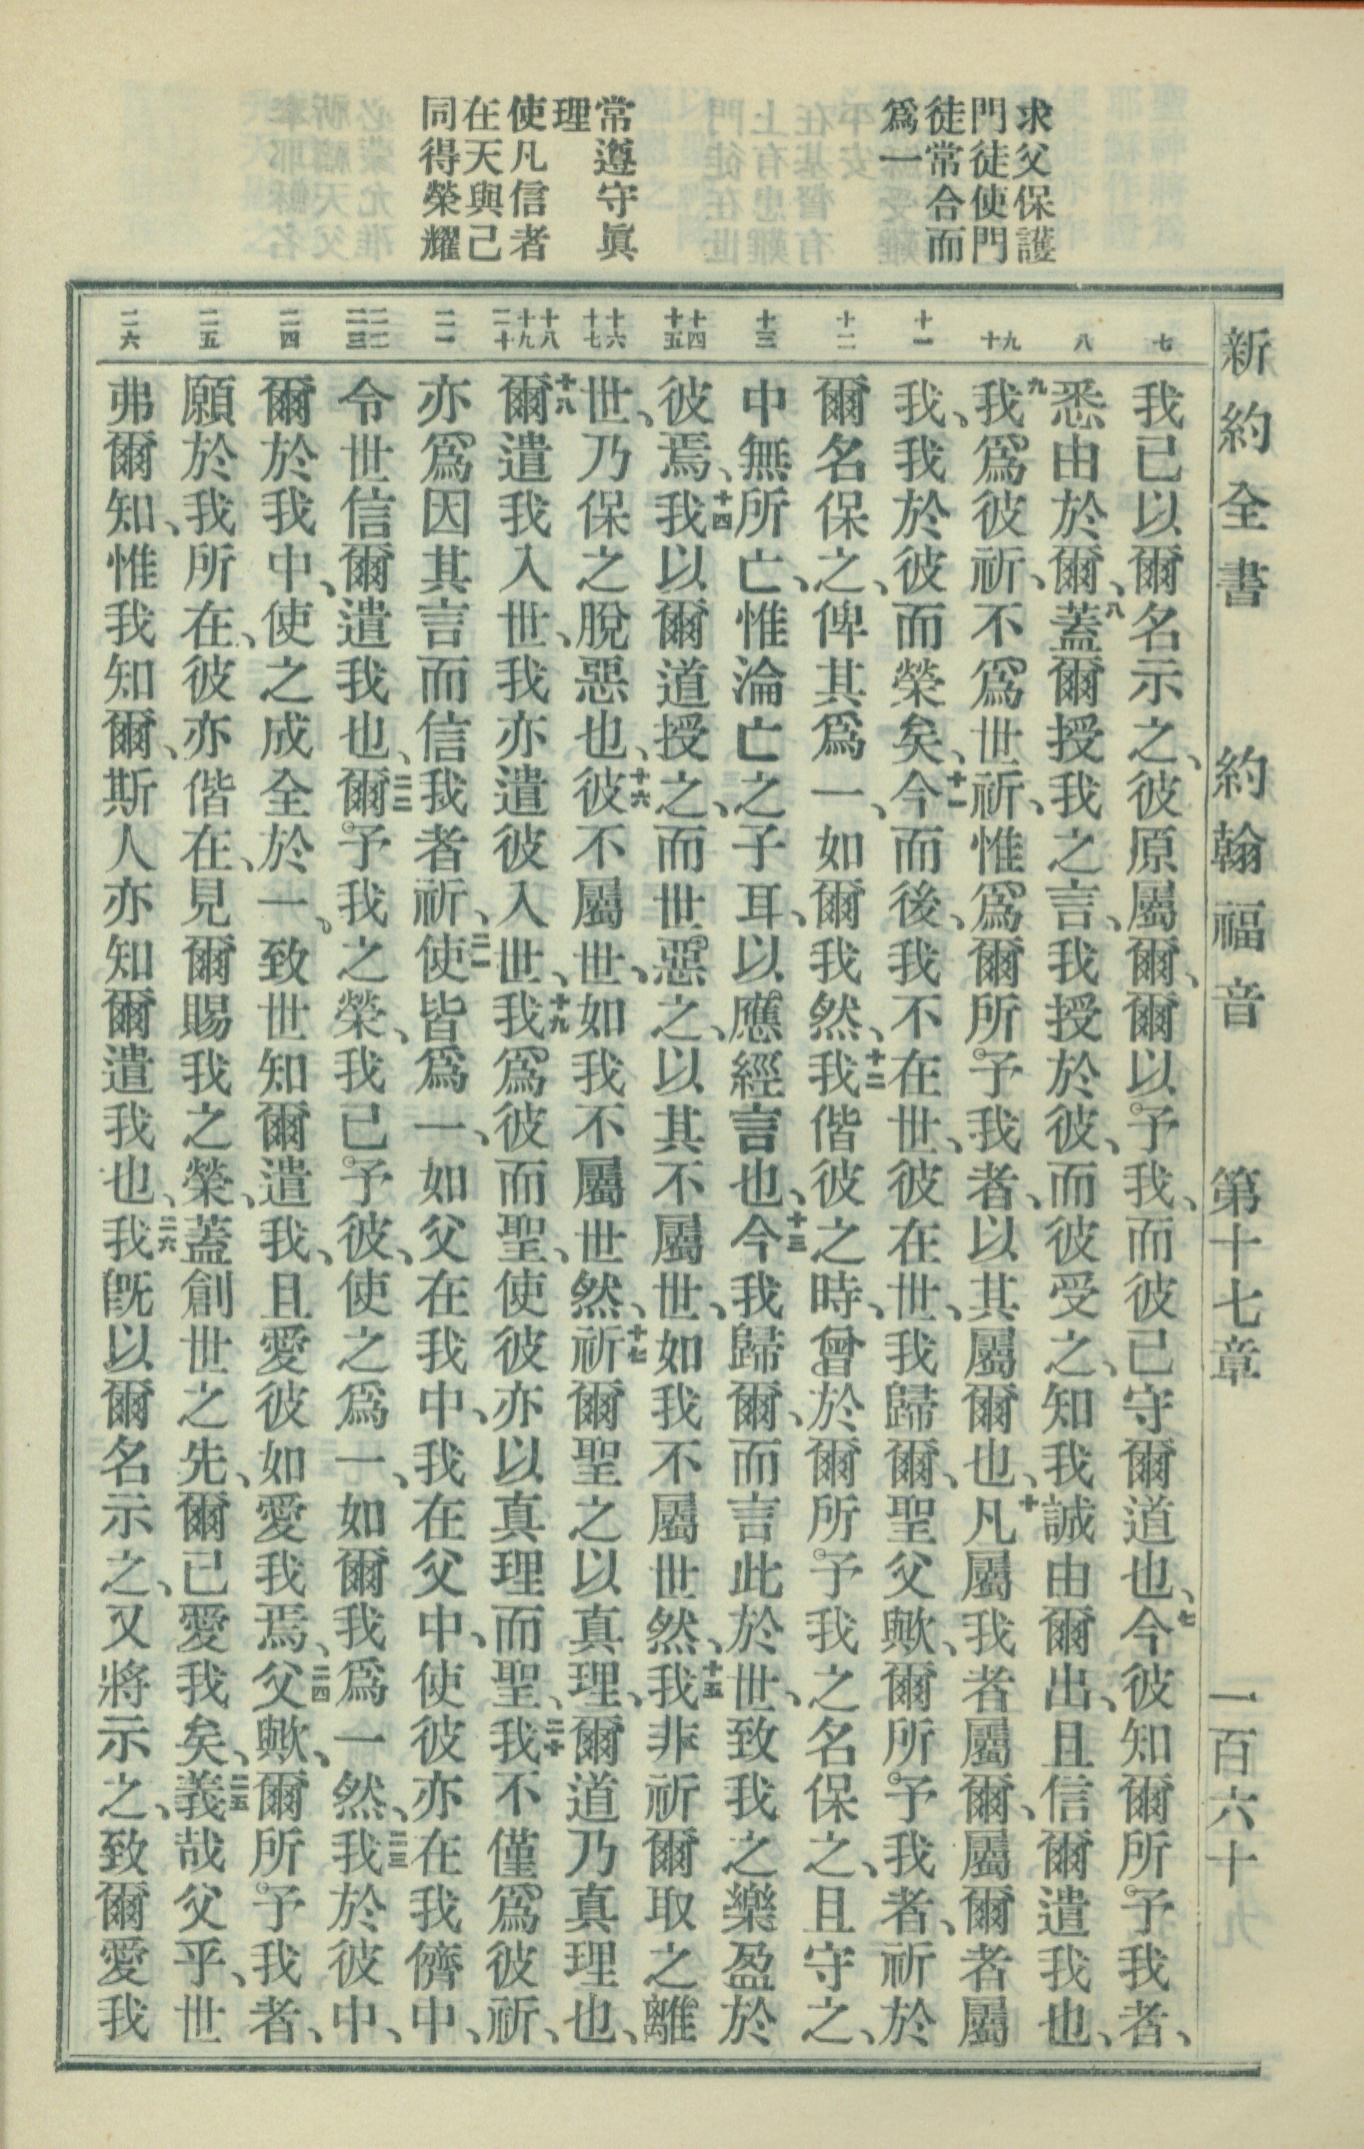 新約全書　約翰福音　第十七章　一百六十
求父保護
門徒使門
徒常合而
爲一
常遵守眞
理
使凡信者
在天與己
同得榮耀
七
八
九 十
十一
十二
十三
十四 十五
十六 十七
十八 十九 二十
二一
二二 二三
二四
二五
二六
我已以爾名示之、彼原屬爾、爾以予我、而彼已守爾道也、七今彼知爾所予我者、
悉由於爾、八蓋爾授我之言、我授於彼、而彼受之、知我誠由爾出、且信爾遣我也、
九我爲彼祈、不爲世祈、惟爲爾所予我者、以其屬爾也、十凡屬我者屬爾、屬爾者屬
我、我於彼而榮矣、十一今而後、我不在世、彼在世、我歸爾、聖父歟、爾所予我者、祈於
爾名保之、俾其爲一、如爾我然、十二我偕彼之時、曾於爾所予我之名保之、且守之、
中無所亡、惟淪亡之子耳、以應經言也、十三今我歸爾、而言此於世、致我之樂盈於
彼焉、十四我以爾道授之、而世惡之、以其不屬世、如我不屬世然、十五我非祈爾取之離
世、乃保之脫惡也、十六彼不屬世、如我不屬世然、十七祈爾聖之以真理、爾道乃真理也、
十八爾遣我入世、我亦遣彼入世、十九我爲彼而聖、使彼亦以真理而聖、二十我不僅爲彼祈、
亦爲因其言而信我者祈、二一使皆爲一、如父在我中、我在父中、使彼亦在我儕中、
令世信爾遣我也、二二爾予我之榮、我已予彼、使之爲一、如爾我爲一然、二三我於彼中、
爾於我中、使之成全於一、致世知爾遣我、且愛彼如愛我焉、二四父歟、爾所予我者、
願於我所在、彼亦偕在、見爾賜我之榮、蓋創世之先、爾已愛我矣、二五義哉父乎、世
弗爾知、惟我知爾、斯人亦知爾遣我也、二六我旣以爾名示之、又將示之、致爾愛我